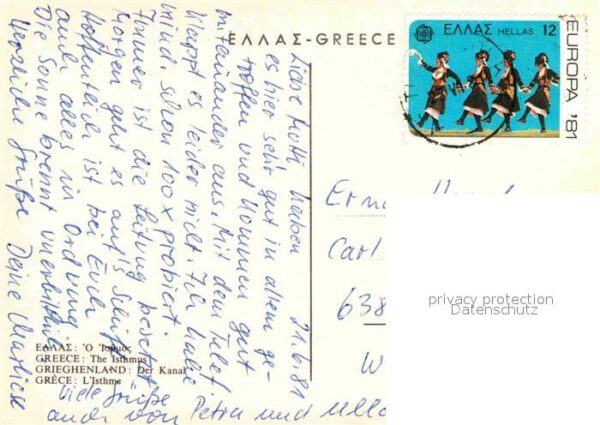 ΕΛΛΑΣ-GREECE
ΕΛΛΑΣ HELLAS 12
EUROPA '81
21.6.81
Liebe Mutti, haben
es hier sehr gut in allem ge-
troffen und kommen gut
miteinander aus. Mit dem Telef.
klappt es leider nicht. Ich habe
mind. schon 100x probiert.
Immer ist die Leitung besetzt.
Morgen geht es auf's Schiff.
Hoffentlich ist bei Euch
auch alles in Ordnung.
Die Sonne brennt unerbittlich.
Herzliche Grüße Deine Marliese
Viele Grüße
auch von Petra und Ulla
Carl
638
W
privacy protection
Datenschutz
ΕΛΛΑΣ: Ὁ Ἰσθμός
GREECE: The Isthmus
GRIEGHENLAND: Der Kanal
GRÈCE: L'Isthme